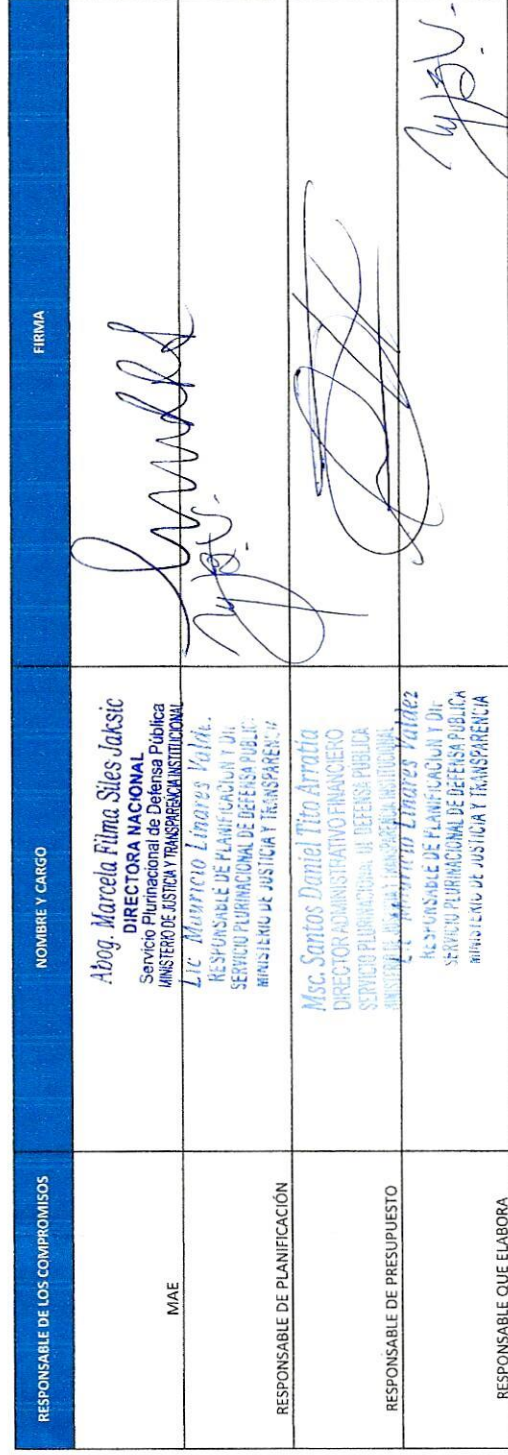 RESPONSABLE DE LOS COMPROMISOS
NOMBRE Y CARGO
FIRMA
MAE
Abog. Marcela Filma Siles Jaksic
DIRECTORA NACIONAL
Servicio Plurinacional de Defensa Pública
MINISTERIO DE JUSTICIA Y TRANSPARENCIA INSTITUCIONAL
RESPONSABLE DE PLANIFICACIÓN
Lic Mauricio Linares
RESPONSABLE DE PLANIFICACION Y
SERVICIO PLURINACIONAL DE DEFENSA
MINISTERIO DE JUSTICIA Y
RESPONSABLE DE PRESUPUESTO
Msc. Santos Daniel Tito Arratia
DIRECTOR ADMINISTRATIVO FINANCIERO
SERVICIO PLURINACIONAL DE DEFENSA PÚBLICA
RESPONSABLE QUE ELABORA
Mauricio Linares Valdez
RESPONSABLE DE PLANIFICACION Y
SERVICIO PLURINACIONAL DE DEFENSA PUBLICA
MINISTERIO DE JUSTICIA Y TRANSPARENCIA